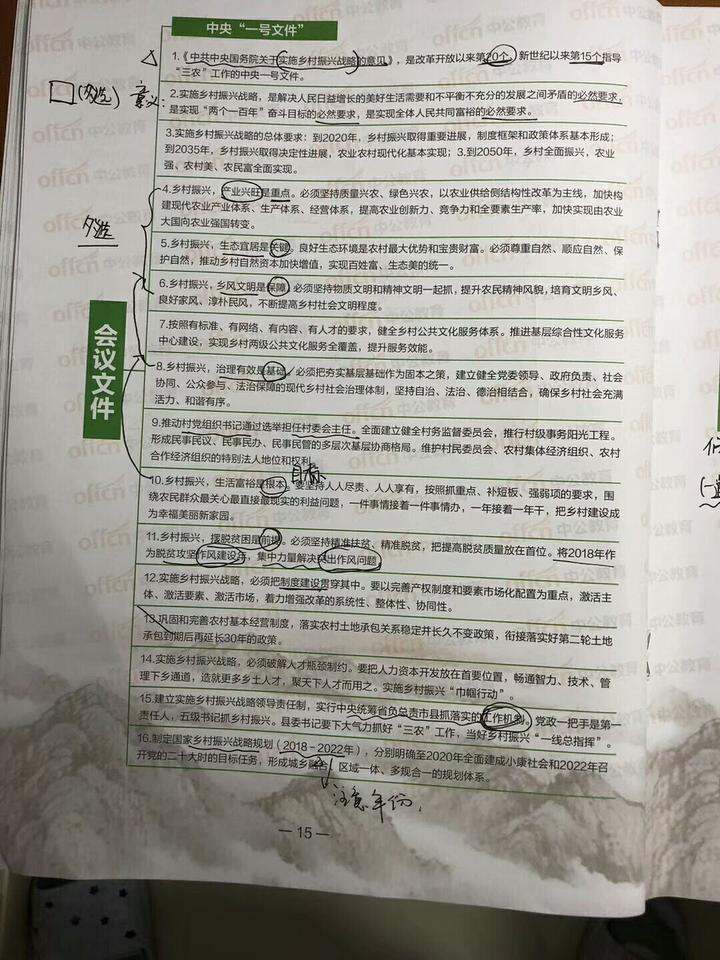 中央“一号文件”
1.《中共中央国务院关于实施乡村振兴战略的意见》，是改革开放以来第20个、新世纪以来第15个指导
“三农”工作的中央一号文件。
(多选) 意义：
2.实施乡村振兴战略，是解决人民日益增长的美好生活需要和不平衡不充分的发展之间矛盾的必然要求，
是实现“两个一百年”奋斗目标的必然要求，是实现全体人民共同富裕的必然要求。
3.实施乡村振兴战略的总体要求：到2020年，乡村振兴取得重要进展，制度框架和政策体系基本形成；
到2035年，乡村振兴取得决定性进展，农业农村现代化基本实现；3.到2050年，乡村全面振兴，农业
强、农村美、农民富全面实现。
4.乡村振兴，产业兴旺是重点。必须坚持质量兴农、绿色兴农，以农业供给侧结构性改革为主线，加快构
建现代农业产业体系、生产体系、经营体系，提高农业创新力、竞争力和全要素生产率，加快实现由农业
大国向农业强国转变。
多选
5.乡村振兴，生态宜居是关键。良好生态环境是农村最大优势和宝贵财富。必须尊重自然、顺应自然、保
护自然，推动乡村自然资本加快增值，实现百姓富、生态美的统一。
6.乡村振兴，乡风文明是保障。必须坚持物质文明和精神文明一起抓，提升农民精神风貌，培育文明乡风、
良好家风、淳朴民风，不断提高乡村社会文明程度。
7.按照有标准、有网络、有内容、有人才的要求，健全乡村公共文化服务体系。推进基层综合性文化服务
中心建设，实现乡村两级公共文化服务全覆盖，提升服务效能。
会议文件
8.乡村振兴，治理有效是基础。必须把夯实基层基础作为固本之策，建立健全党委领导、政府负责、社会
协同、公众参与、法治保障的现代乡村社会治理体制，坚持自治、法治、德治相结合，确保乡村社会充满
活力、和谐有序。
9.推动村党组织书记通过选举担任村委会主任。全面建立健全村务监督委员会，推行村级事务阳光工程。
形成民事民议、民事民办、民事民管的多层次基层协商格局。维护村民委员会、农村集体经济组织、农村
合作经济组织的特别法人地位和权利。
目标
10.乡村振兴，生活富裕是根本。要坚持人人尽责、人人享有，按照抓重点、补短板、强弱项的要求，围
绕农民群众最关心最直接最现实的利益问题，一件事情接着一件事情办，一年接着一年干，把乡村建设成
为幸福美丽新家园。
11.乡村振兴，摆脱贫困是前提。必须坚持精准扶贫、精准脱贫，把提高脱贫质量放在首位。将2018年作
为脱贫攻坚作风建设年，集中力量解决突出作风问题
12.实施乡村振兴战略，必须把制度建设贯穿其中。要以完善产权制度和要素市场化配置为重点，激活主
体、激活要素、激活市场，着力增强改革的系统性、整体性、协同性。
13.巩固和完善农村基本经营制度，落实农村土地承包关系稳定并长久不变政策，衔接落实好第二轮土地
承包到期后再延长30年的政策。
14.实施乡村振兴战略，必须破解人才瓶颈制约。要把人力资本开发放在首要位置，畅通智力、技术、管
理下乡通道，造就更多乡土人才，聚天下人才而用之。实施乡村振兴“巾帼行动”。
15.建立实施乡村振兴战略领导责任制，实行中央统筹省负总责市县抓落实的工作机制。党政一把手是第一
责任人，五级书记抓乡村振兴。县委书记要下大气力抓好“三农”工作，当好乡村振兴“一线总指挥”。
16.制定国家乡村振兴战略规划（2018－2022年），分别明确至2020年全面建成小康社会和2022年召
开党的二十大时的目标任务，形成城乡融合、区域一体、多规合一的规划体系。
注意年份。
— 15 —